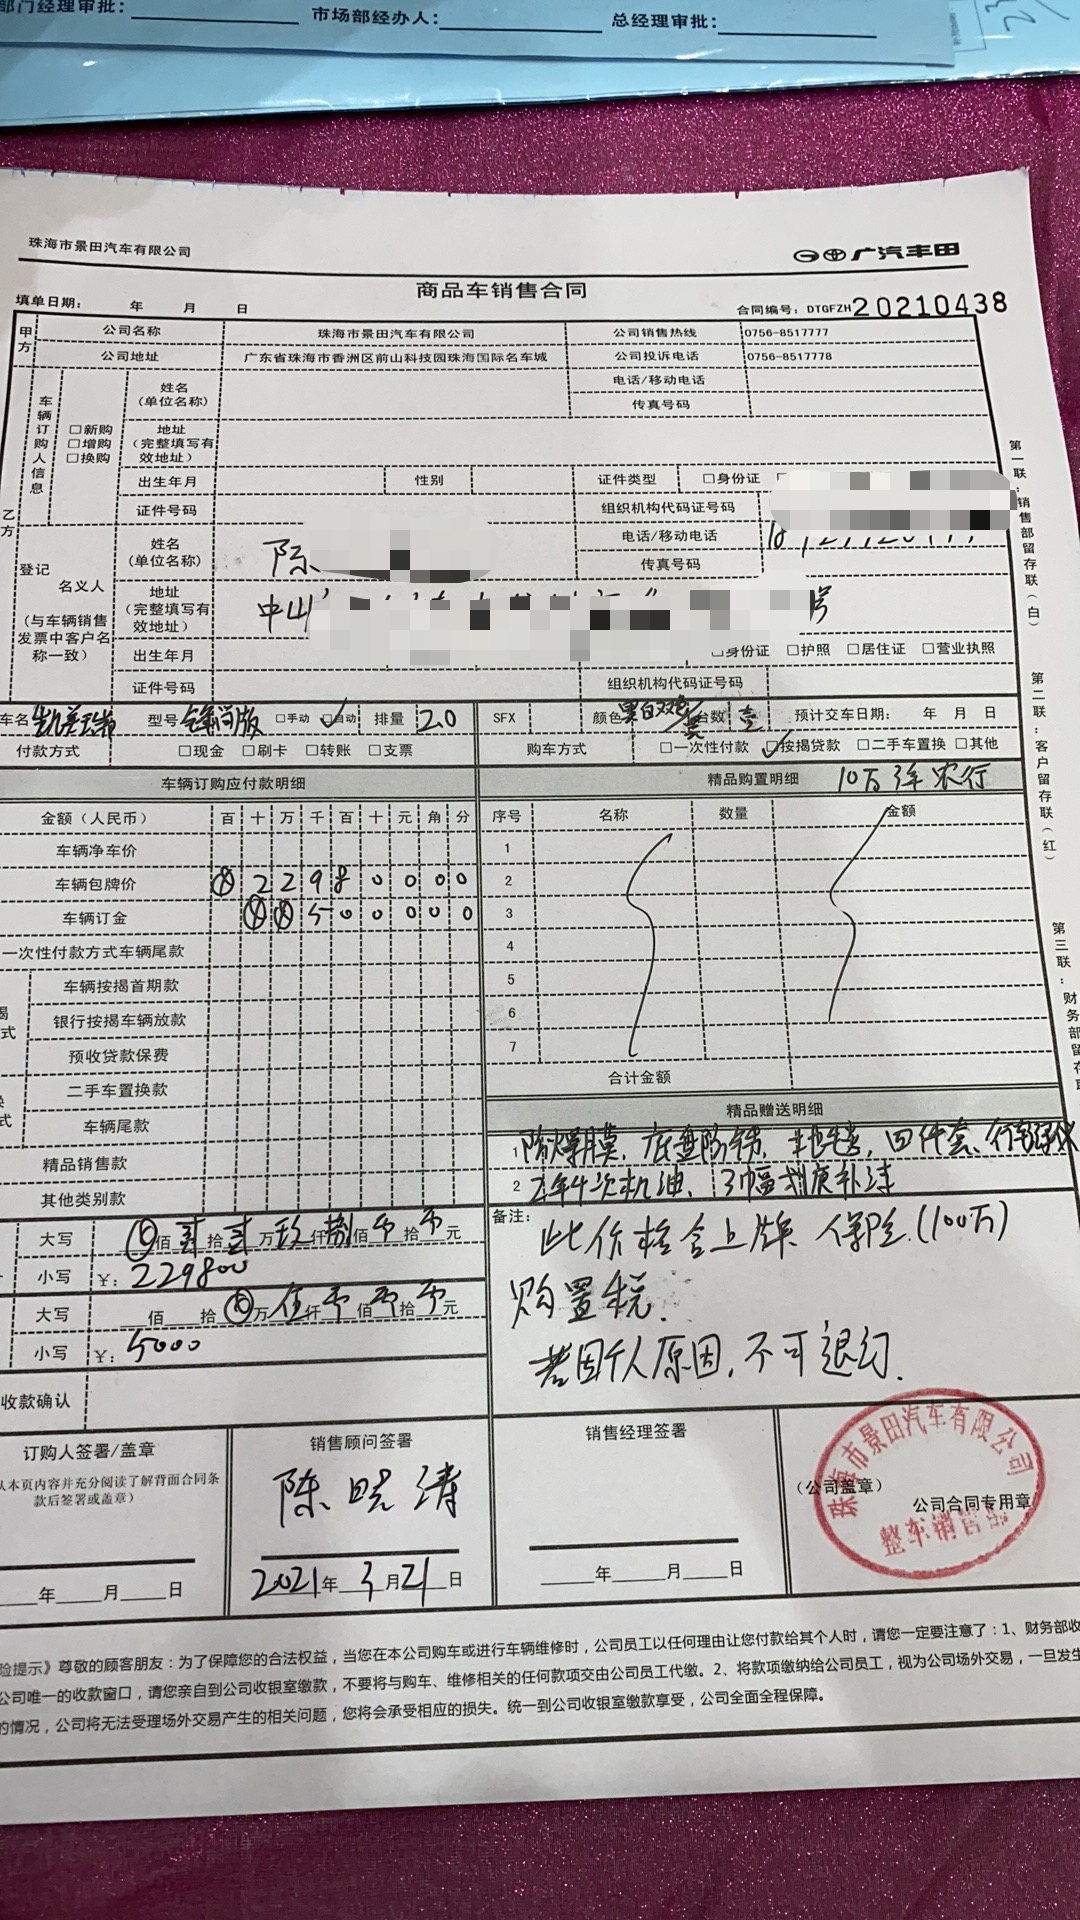 部门经理审批: 市场部经办人: 总经理审批:
珠海市景田汽车有限公司 广汽丰田
商品车销售合同
填单日期: 年 月 日 合同编号: DTGFZH20210438
甲方 公司名称 珠海市景田汽车有限公司 公司销售热线 0756-8517777
公司地址 广东省珠海市香洲区前山科技园珠海国际名车城 公司投诉电话 0756-8517778
乙方 车辆订购人信息 □新购 □增购 □换购 姓名(单位名称) 电话/移动电话
传真号码
地址(完整填写有效地址)
出生年月 性别 证件类型 □身份证
证件号码 组织机构代码证号码
登记名义人(与车辆销售发票中客户名称一致) 姓名(单位名称) 陈 电话/移动电话
传真号码
地址(完整填写有效地址) 中山 号
出生年月 □身份证 □护照 □居住证 □营业执照
证件号码 组织机构代码证号码
车名 凯美瑞 型号 锋尚版 □手动 ☑自动 排量 2.0 SFX 颜色 黑白双 台数 壹 预计交车日期: 年 月 日
付款方式 □现金 □刷卡 □转账 □支票 购车方式 □一次性付款 ☑按揭贷款 □二手车置换 □其他
车辆订购应付款明细 精品购置明细 10万 3年 农行
金额(人民币) 百 十 万 千 百 十 元 角 分 序号 名称 数量 金额
车辆净车价 1
车辆包牌价 ⊗ 2 2 9 8 0 0 0 0 2
车辆订金 ⊗ ⊗ 5 0 0 0 0 0 3
一次性付款方式车辆尾款 4
车辆按揭首期款 5
银行按揭车辆放款 6
预收贷款保费 7
二手车置换款 合计金额
车辆尾款 精品赠送明细
1 防爆膜、底盘防锈、地毯、四件套、行车记录仪
精品销售款
2 2年4次机油、3幅划痕补漆
其他类别款
大写 ⊗佰贰拾贰万玖仟捌佰零拾零元
小写 ¥: 229800
大写 佰 拾⊗万伍仟零佰零拾零元
小写 ¥: 5000
备注: 此价格含上牌、保险(100万)
购置税.
若因个人原因, 不可退订.
收款确认
订购人签署/盖章 销售顾问签署 销售经理签署
认本页内容并充分阅读了解背面合同条款后签署或盖章)
陈晓清
(公司盖章) 公司合同专用章
珠海市景田汽车有限公司
整车销售
年 月 日 2021年3月21日 年 月 日
第一联:销售部留存联(白)
第二联:客户留存联(红)
第三联:财务部留存联
险提示》尊敬的顾客朋友:为了保障您的合法权益,当您在本公司购车或进行车辆维修时,公司员工以任何理由让您付款给其个人时,请您一定要注意了:1、财务部收
公司唯一的收款窗口,请您亲自到公司收银室缴款,不要将与购车、维修相关的任何款项交由公司员工代缴。2、将款项缴纳给公司员工,视为公司场外交易,一旦发生
的情况,公司将无法受理场外交易产生的相关问题,您将会承受相应的损失。统一到公司收银室缴款享受,公司全面全程保障。